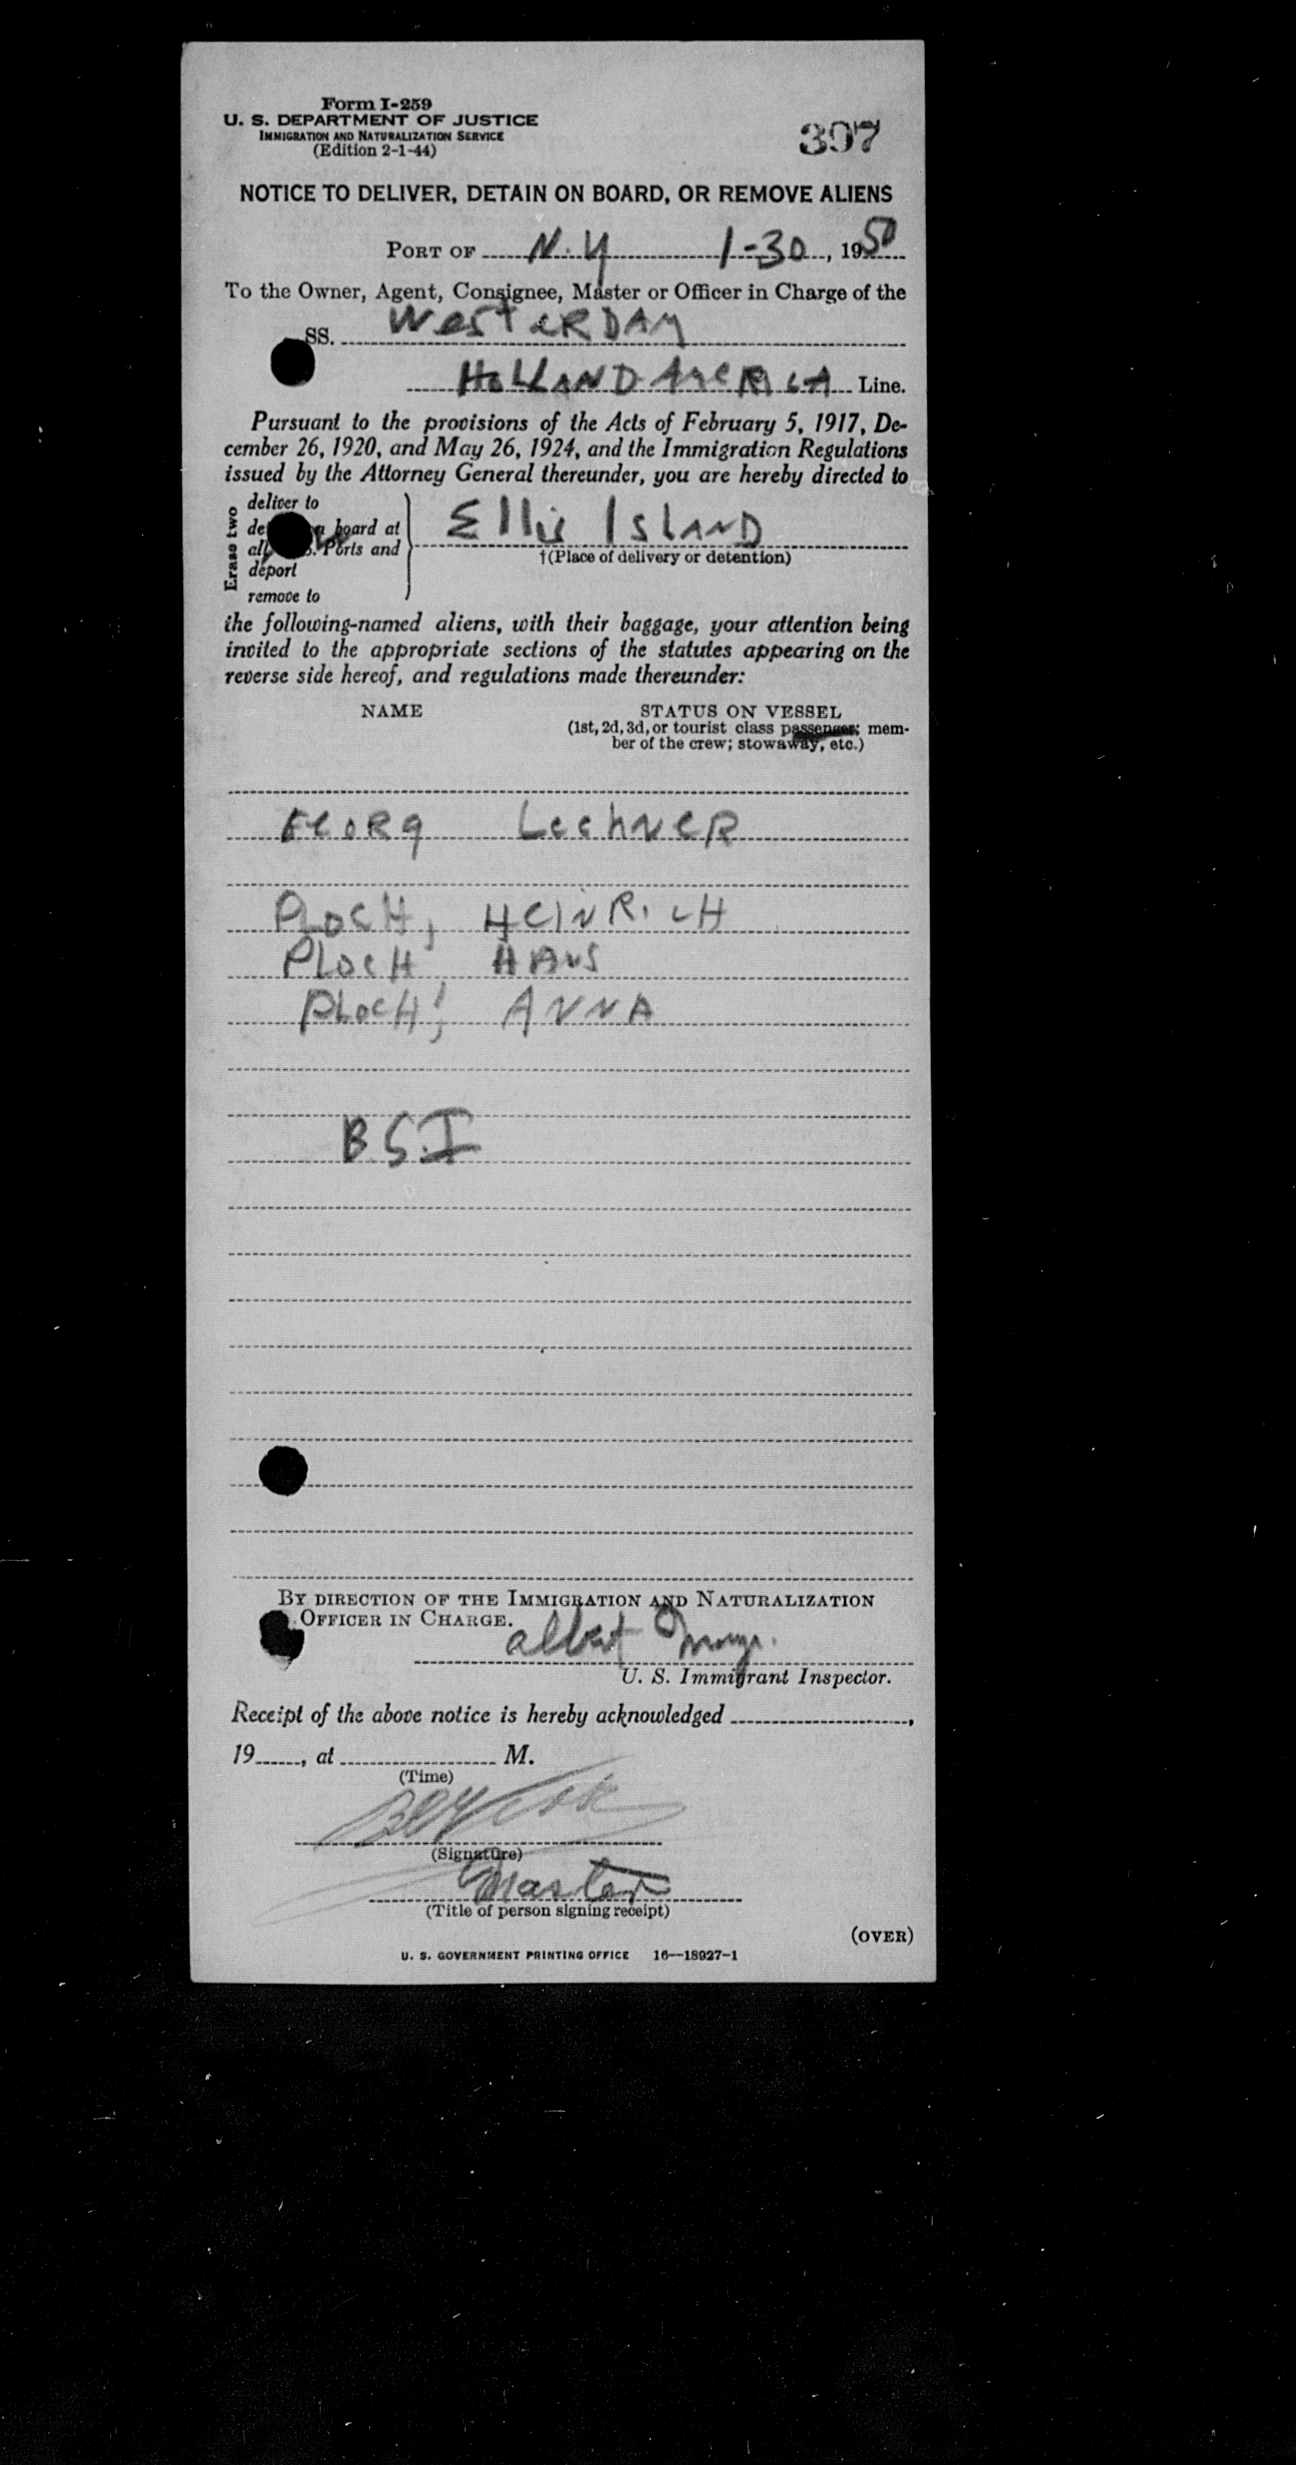 Form I-259
U. S. DEPARTMENT OF JUSTICE
IMMIGRATION AND NATURALIZATION SERVICE
(Edition 2-1-44)
397
NOTICE TO DELIVER, DETAIN ON BOARD, OR REMOVE ALIENS
PORT OF N.Y 1-30, 1950
To the Owner, Agent, Consignee, Master or Officer in Charge of the
SS. WESTERDAM
HOLLAND AMERICA Line.
Pursuant to the provisions of the Acts of February 5, 1917, De-
cember 26, 1920, and May 26, 1924, and the Immigration Regulations
issued by the Attorney General thereunder, you are hereby directed to
Erase two
deliver to
board at
Ports and
deport
remove to
Ellis Island
†(Place of delivery or detention)
the following-named aliens, with their baggage, your attention being
invited to the appropriate sections of the statutes appearing on the
reverse side hereof, and regulations made thereunder:
NAME STATUS ON VESSEL
(1st, 2d, 3d, or tourist class passenger; mem-
ber of the crew; stowaway, etc.)
Georg Lechner
PLOCH, HEINRICH
PLOCH HANS
PLOCH, ANNA
BSI
BY DIRECTION OF THE IMMIGRATION AND NATURALIZATION
OFFICER IN CHARGE.
Albert
U. S. Immigrant Inspector.
Receipt of the above notice is hereby acknowledged ,
19 , at M.
(Time)
(Signature)
Master
(Title of person signing receipt)
(OVER)
U. S. GOVERNMENT PRINTING OFFICE 16—18927-1